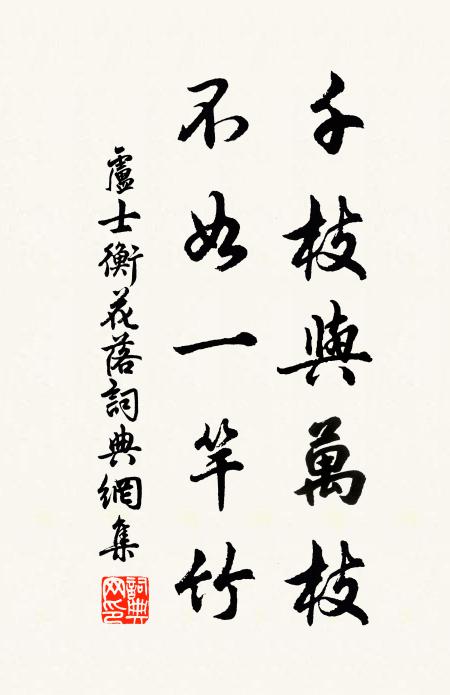 千枝與萬枝
不如一竿竹
盧士衡花落詞典網集
詞典網印